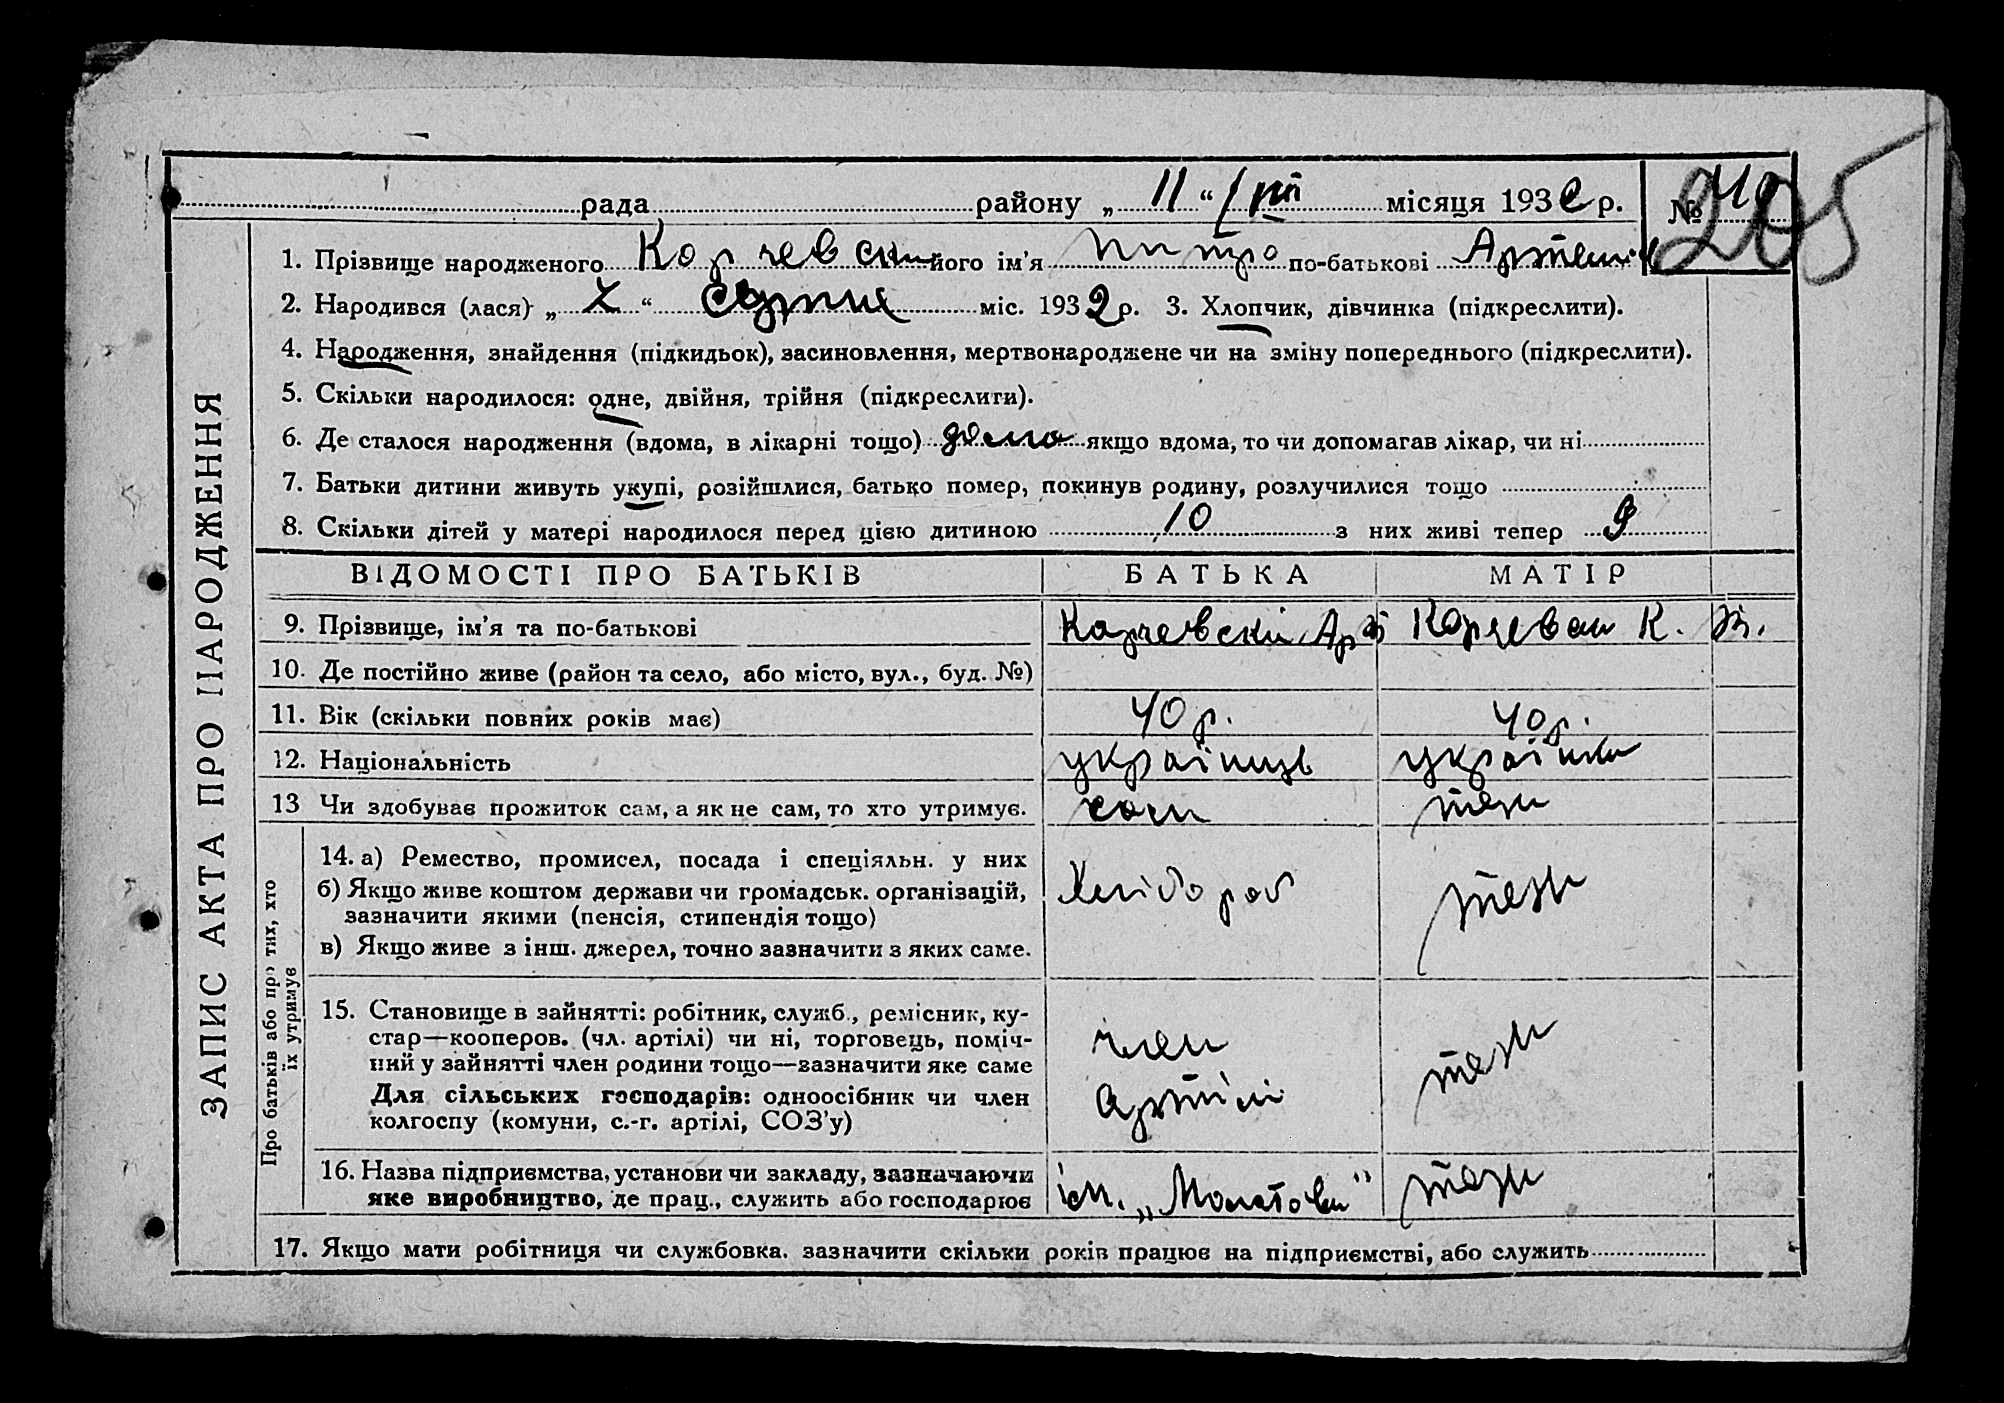 рада району „ 11 “ / VIII місяця 1932 р. № 40
205
1. Прізвище народженого Корчевски його ім’я Питро по-батькові Артем
2. Народився (лася) „ X “ серпня міс. 1932 р. 3. Хлопчик, дівчинка (підкреслити).
4. Народження, знайдення (підкидьок), засиновлення, мертвонароджене чи на зміну попереднього (підкреслити).
5. Скільки народилося: одне, двійня, трійня (підкреслити).
6. Де сталося народження (вдома, в лікарні тощо) дома якщо вдома, то чи допомагав лікар, чи ні
7. Батьки дитини живуть укупі, розійшлися, батько помер, покинув родину, розлучилися тощо
8. Скільки дітей у матері народилося перед цією дитиною 10 з них живі тепер 9
ЗАПИС АКТА ПРО НАРОДЖЕННЯ
ВІДОМОСТІ ПРО БАТЬКІВ БАТЬКА МАТІР
9. Прізвище, ім’я та по-батькові Корчевскі Ар К.
10. Де постійно живе (район та село, або місто, вул., буд. №)
11. Вік (скільки повних років має) 40 р. 40 р.
12. Національність українць українка
13 Чи здобуває прожиток сам, а як не сам, то хто утримує. сам теж
Про батьків або про тих, хто
їх утримує
14. а) Ремество, промисел, посада і спеціяльн. у них
б) Якщо живе коштом держави чи громадськ. організацій, Хлібороб теж
зазначити якими (пенсія, стипендія тощо)
в) Якщо живе з інш. джерел, точно зазначити з яких саме.
15. Становище в зайнятті: робітник, служб., ремісник, ку-
стар—кооперов. (чл. артілі) чи ні, торговець, поміч- член теж
ний у зайнятті член родини тощо—зазначити яке саме
Для сільських господарів: одноосібник чи член артілі
колгоспу (комуни, с.-г. артілі, СОЗ’у)
16. Назва підприємства, установи чи закладу, зазначаючи ім. „Молотова” теж
яке виробництво, де прац., служить або господарює
17. Якщо мати робітниця чи службовка. зазначити скільки років працює на підприємстві, або служить